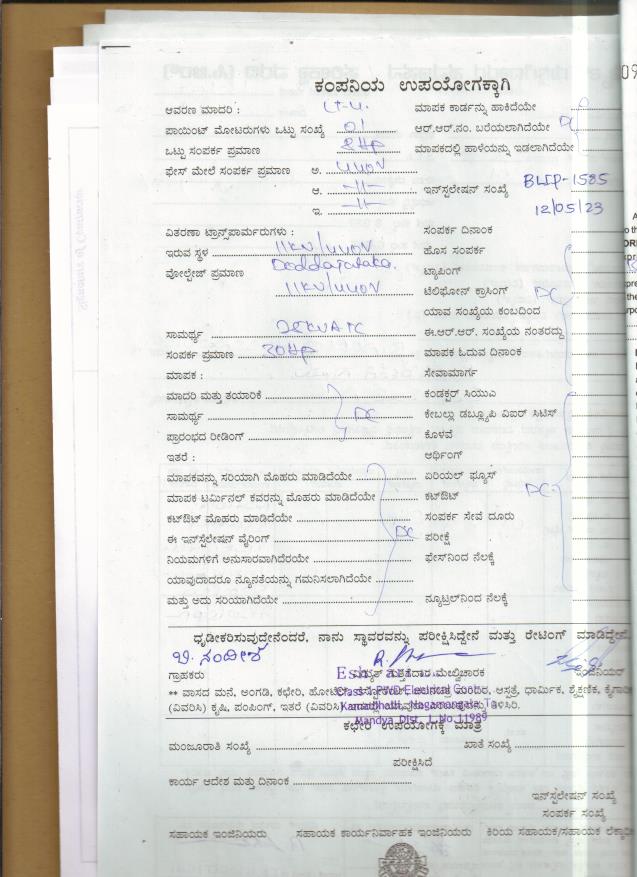 ಕಂಪನಿಯ ಉಪಯೋಗಕ್ಕಾಗಿ
09
ಆವರಣ ಮಾದರಿ : LT-4. ಮಾಪಕ ಕಾರ್ಡನ್ನು ಹಾಕಿದೆಯೇ
ಪಾಯಿಂಟ್ ಮೋಟರುಗಳು ಒಟ್ಟು ಸಂಖ್ಯೆ 01 ಆರ್.ಆರ್.ನಂ. ಬರೆಯಲಾಗಿದೆಯೇ DC
ಒಟ್ಟು ಸಂಪರ್ಕ ಪ್ರಮಾಣ HP ಮಾಪಕದಲ್ಲಿ ಹಾಳೆಯನ್ನು ಇಡಲಾಗಿದೆಯೇ
ಫೇಸ್ ಮೇಲೆ ಸಂಪರ್ಕ ಪ್ರಮಾಣ ಅ. 440V
ಆ. -11- ಇನ್‌ಸ್ಟಲೇಷನ್ ಸಂಖ್ಯೆ BLIP-1585
ಇ. -11- 12/05/23
ವಿತರಣಾ ಟ್ರಾನ್ಸ್‌ಪಾರ್ಮರುಗಳು : ಸಂಪರ್ಕ ದಿನಾಂಕ
ಇರುವ ಸ್ಥಳ 11KV/440V ಹೊಸ ಸಂಪರ್ಕ
ವೋಲ್ಟೇಜ್ ಪ್ರಮಾಣ ಟ್ಯಾಪಿಂಗ್
11KV/440V ಟೆಲಿಫೋನ್ ಕ್ರಾಸಿಂಗ್ DC
ಯಾವ ಸಂಖ್ಯೆಯ ಕಂಬದಿಂದ
ಸಾಮರ್ಥ್ಯ 25KVA TC ಈ.ಆರ್.ಆರ್. ಸಂಖ್ಯೆಯ ನಂತರದ್ದು
ಸಂಪರ್ಕ ಪ್ರಮಾಣ 20HP ಮಾಪಕ ಓದುವ ದಿನಾಂಕ
ಮಾಪಕ : ಸೇವಾಮಾರ್ಗ
ಮಾದರಿ ಮತ್ತು ತಯಾರಿಕೆ ಕಂಡಕ್ಟರ್ ಸಿಯುಎ
ಸಾಮರ್ಥ್ಯ DC ಕೇಬಲ್ಲು ಡಬ್ಲ್ಯೂಪಿ ವಿಐರ್ ಸಿಟಿಸ್
ಪ್ರಾರಂಭದ ರೀಡಿಂಗ್ ಕೊಳವೆ
ಇತರೆ : ಆರ್ಥಿಂಗ್
ಮಾಪಕವನ್ನು ಸರಿಯಾಗಿ ಮೊಹರು ಮಾಡಿದೆಯೇ ಏರಿಯಲ್ ಫ್ಯೂಸ್
ಮಾಪಕ ಟರ್ಮಿನಲ್ ಕವರನ್ನು ಮೊಹರು ಮಾಡಿದೆಯೇ ಕಟ್‌ಔಟ್ DC
ಕಟ್‌ಔಟ್ ಮೊಹರು ಮಾಡಿದೆಯೇ ಸಂಪರ್ಕ ಸೇವೆ ದೂರು
ಈ ಇನ್‌ಸ್ಟೆಲೇಷನ್ ವೈರಿಂಗ್ DC ಪರೀಕ್ಷೆ
ನಿಯಮಗಳಿಗೆ ಅನುಸಾರವಾಗಿದೆರೆಯೇ ಫೇಸ್‌ನಿಂದ ನೆಲಕ್ಕೆ
ಯಾವುದಾದರೂ ನ್ಯೂನತೆಯನ್ನು ಗಮನಿಸಲಾಗಿದೆಯೇ
ಮತ್ತು ಅದು ಸರಿಯಾಗಿದೆಯೇ ನ್ಯೂಟ್ರಲ್‌ನಿಂದ ನೆಲಕ್ಕೆ
ಧೃಡೀಕರಿಸುವುದೇನೆಂದರೆ, ನಾನು ಸ್ಥಾವರವನ್ನು ಪರೀಕ್ಷಿಸಿದ್ದೇನೆ ಮತ್ತು ರೇಟಿಂಗ್ ಮಾಡಿದ್ದೇನೆ.
ಗ್ರಾಹಕರು ವಿದ್ಯುತ್ ಗುತ್ತಿಗೆದಾರ ಮೇಲ್ವಿಚಾರಕ
Class-I PWD Electrical Contr
** ವಾಸದ ಮನೆ, ಅಂಗಡಿ, ಕಛೇರಿ, ಆಸ್ಪತ್ರೆ, ಧಾರ್ಮಿಕ, ಶೈಕ್ಷಣಿಕ,
Nagamangala Ta
(ವಿವರಿಸಿ) ಕೃಷಿ, ಪಂಪಿಂಗ್, ಇತರೆ (ವಿವರಿಸಿ) ತಿಳಿಸಿರಿ.
Mandya Dist. L.No.11989
ಕಛೇರಿ ಉಪಯೋಗಕ್ಕೆ ಮಾತ್ರ
ಮಂಜೂರಾತಿ ಸಂಖ್ಯೆ ಖಾತೆ ಸಂಖ್ಯೆ
ಪರೀಕ್ಷಿಸಿದೆ
ಕಾರ್ಯ ಆದೇಶ ಮತ್ತು ದಿನಾಂಕ
ಇನ್‌ಸ್ಟಲೇಷನ್ ಸಂಖ್ಯೆ
ಸಂಪರ್ಕ ಸಂಖ್ಯೆ
ಸಹಾಯಕ ಇಂಜಿನಿಯರು ಸಹಾಯಕ ಕಾರ್ಯನಿರ್ವಾಹಕ ಇಂಜಿನಿಯರು ಕಿರಿಯ ಸಹಾಯಕ/ಸಹಾಯಕ